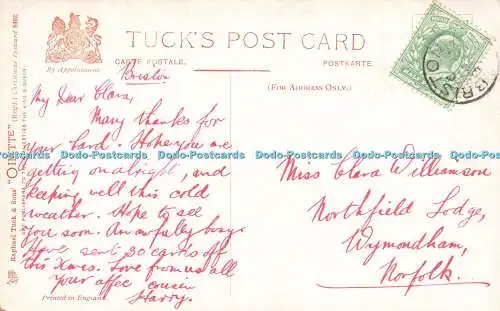 TUCK'S POST CARD
CARTE POSTALE.
POSTKARTE.
By Appointment.
(FOR ADDRESS ONLY.)
Raphael Tuck & Sons' "OILETTE" (Regd.) Christmas Postcard
Bristol
My Dear Clara,
Many thanks for
your Card. Hope you are
getting on alright, and
keeping well this cold
weather. Hope to see
you soon. Am awfully busy
Have sent 30 cards off
this Xmas. Love from us all
your affec cousin
Harry.
Printed in England.
Miss Clara Williamson
Northfield Lodge,
Wymondham,
Norfolk.
BRISTO
Dodo-Postcards Dodo-Postcards Dodo-Postcards Dodo-Postcards Dodo-Postcards